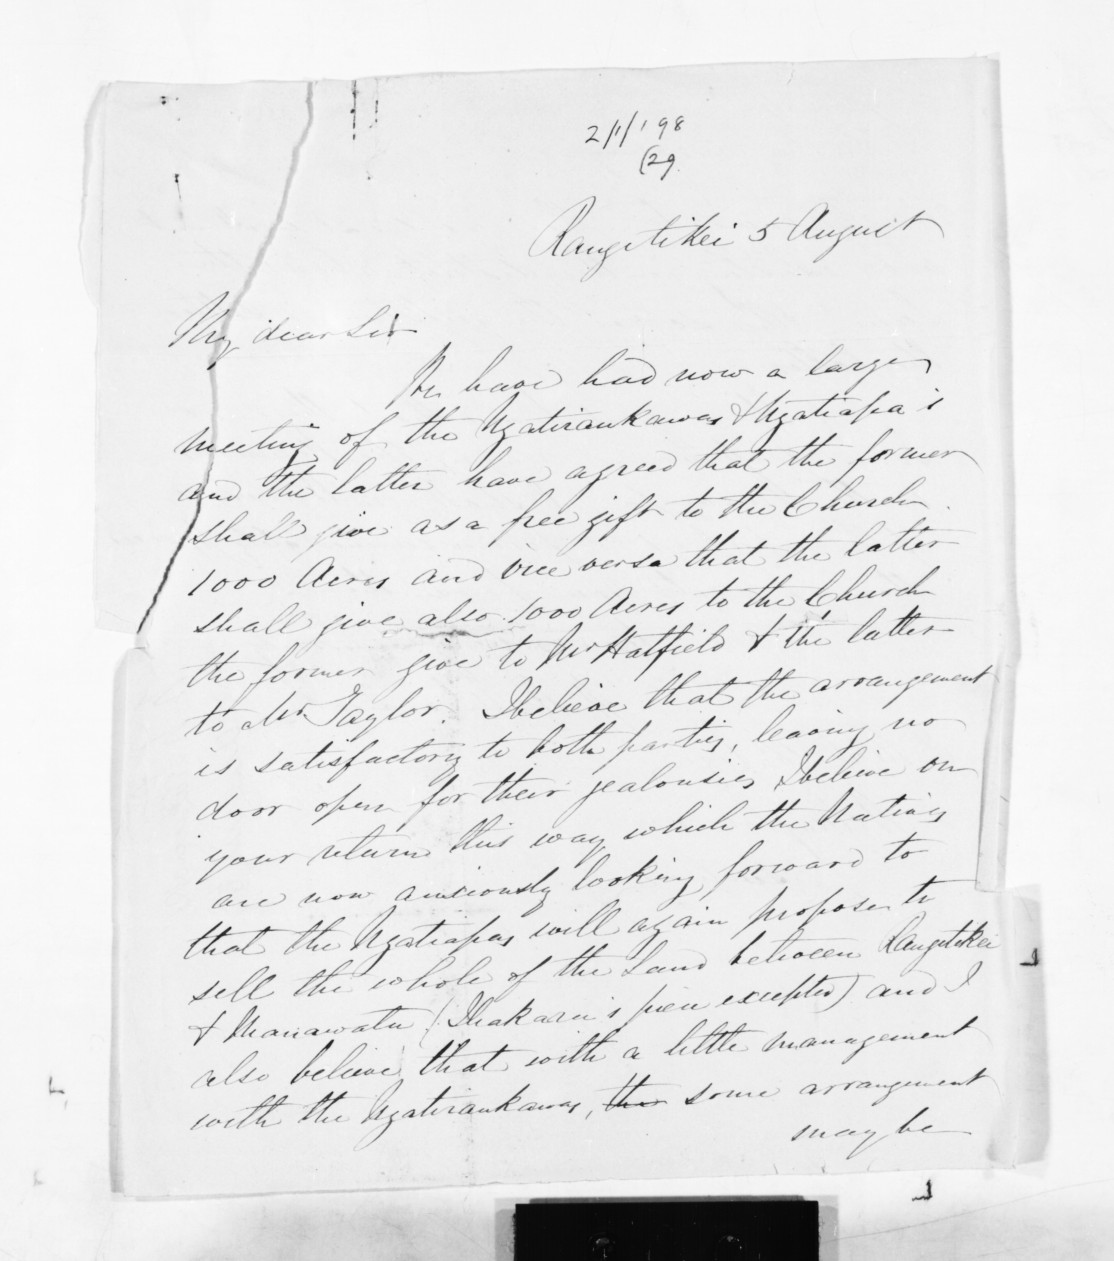 2/1/198
(29.
Rangitikei 5 August
My dear Sir
We have had now a large
meeting of the Ngatiraukawas & Ngatiapa's
and the latter have agreed that the former
shall give as a free gift to the Church
1000 Acres and vice versa that the latter
shall give also 1000 Acres to the Church
the former give to Mr Hatfield & the latter
to Mr Taylor. I believe that the arrangement
is satisfactory to both parties, leaving no
door open for their jealousies, I believe on
your return this way which the Natives
are now anxiously looking forward to
that the Ngatiapas will again propose to
sell the whole of the Land between Rangitikei
& Manawatu (Ihakara's piece excepted) and I
also believe that with a little management
with the Ngatiraukawas, the some arrangement
may be